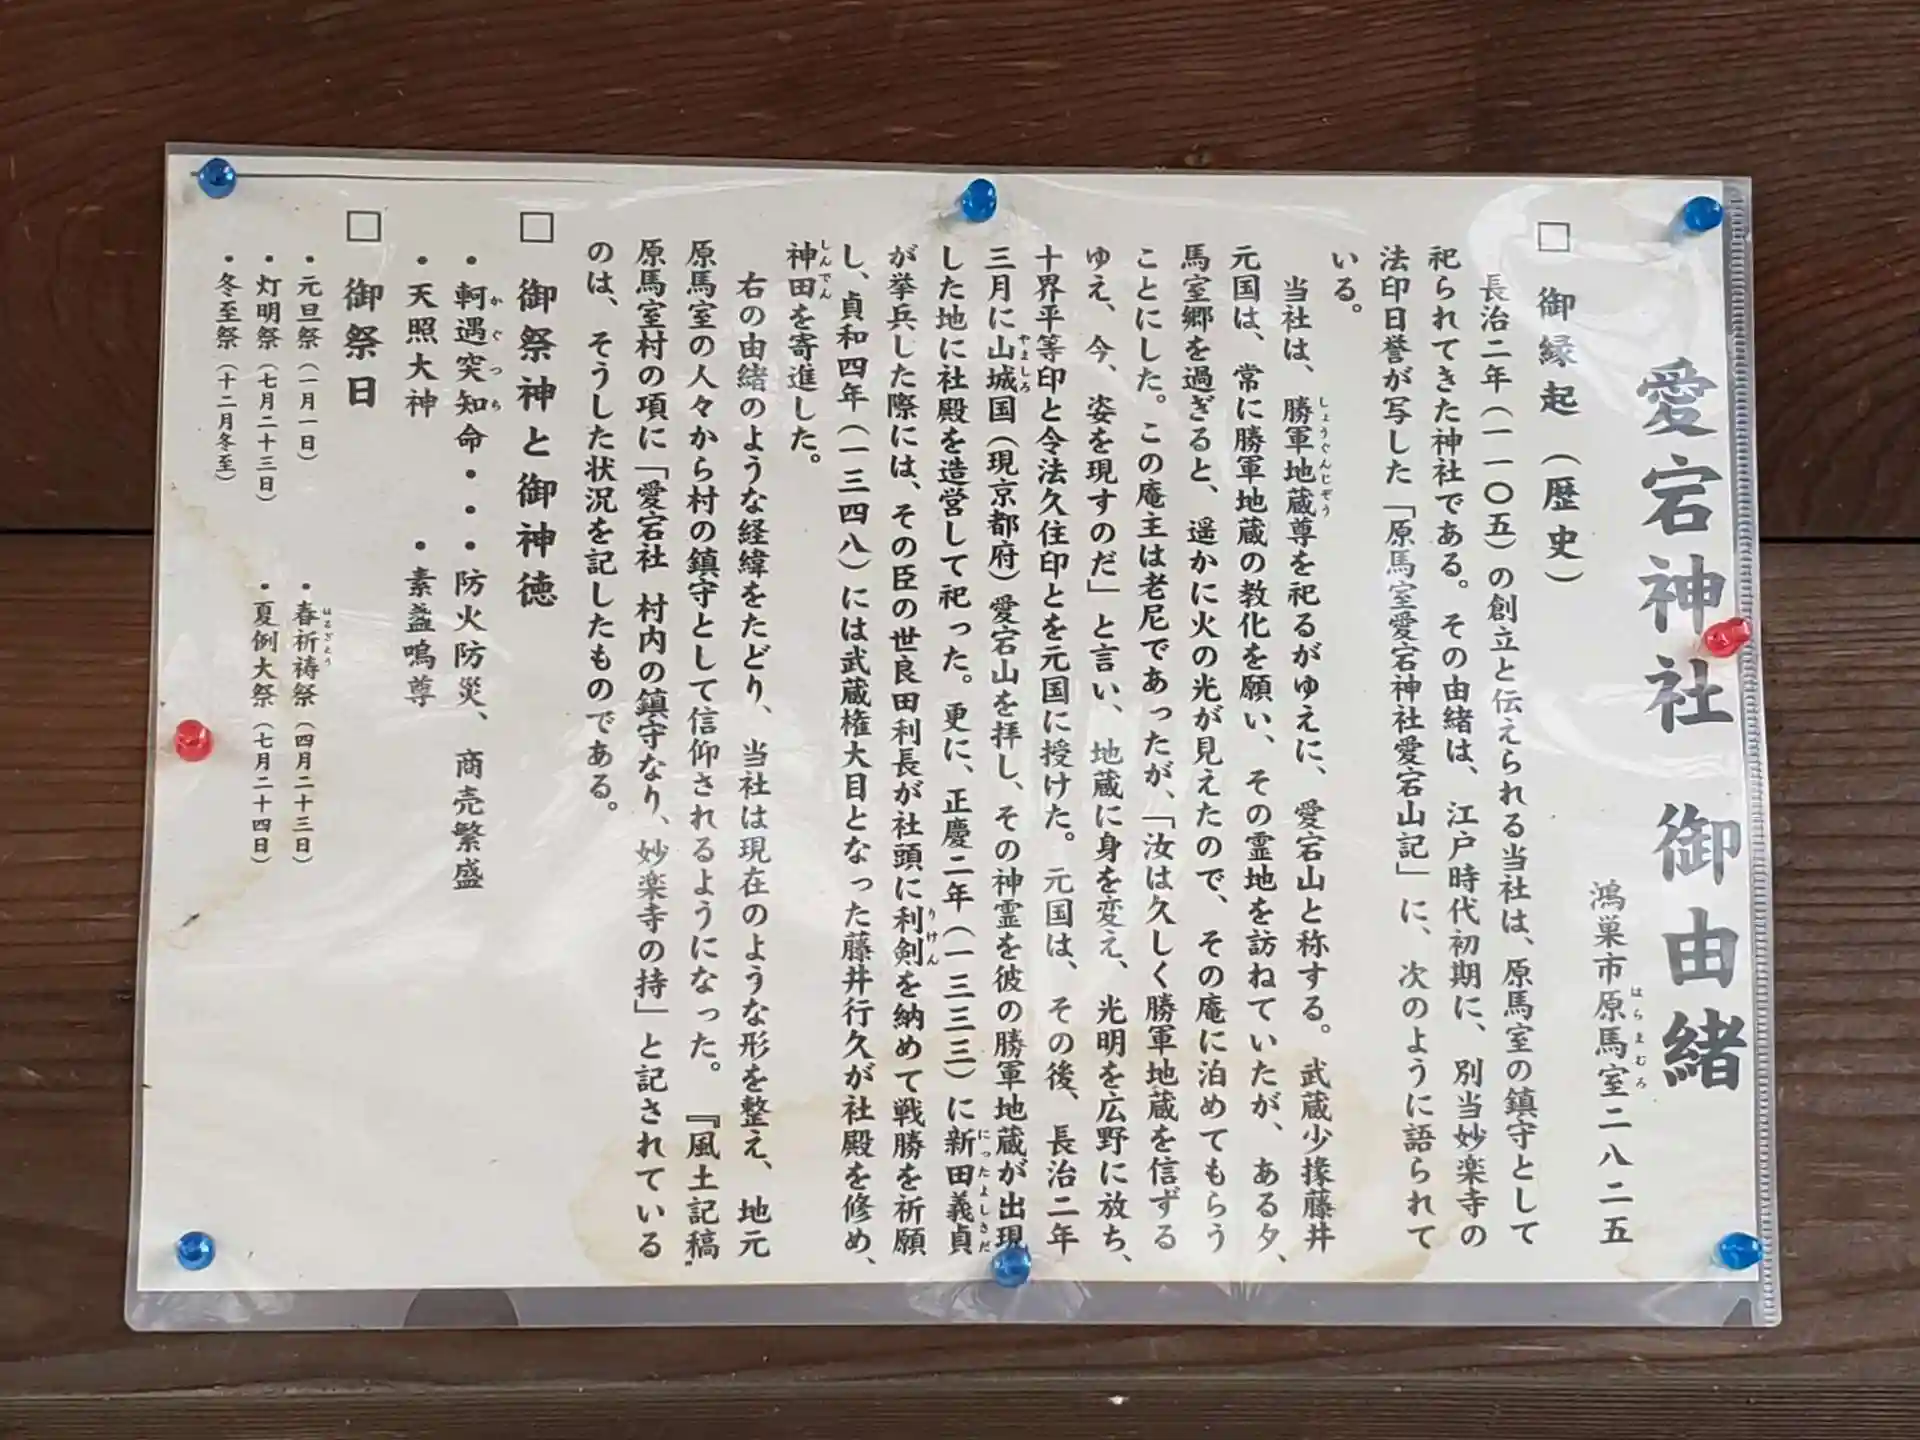 愛宕神社 御由緒
鴻巣市原馬室二八二五
□ 御縁起（歴史）
長治二年（一一〇五）の創立と伝えられる当社は、原馬室の鎮守として
祀られてきた神社である。その由緒は、江戸時代初期に、別当妙楽寺の
法印日誉が写した「原馬室愛宕神社愛宕山記」に、次のように語られて
いる。
当社は、勝軍地蔵尊を祀るがゆえに、愛宕山と称する。武蔵少掾藤井
元国は、常に勝軍地蔵の教化を願い、その霊地を訪ねていたが、ある夕、
馬室郷を過ぎると、遥かに火の光が見えたので、その庵に泊めてもらう
ことにした。この庵主は老尼であったが、「汝は久しく勝軍地蔵を信ずる
ゆえ、今、姿を現すのだ」と言い、地蔵に身を変え、光明を広野に放ち、
十界平等印と令法久住印とを元国に授けた。元国は、その後、長治二年
三月に山城国（現京都府）愛宕山を拝し、その神霊を彼の勝軍地蔵が出現
した地に社殿を造営して祀った。更に、正慶二年（一三三三）に新田義貞
が挙兵した際には、その臣の世良田利長が社頭に利剣を納めて戦勝を祈願
し、貞和四年（一三四八）には武蔵権大目となった藤井行久が社殿を修め、
神田を寄進した。
右の由緒のような経緯をたどり、当社は現在のような形を整え、地元
原馬室の人々から村の鎮守として信仰されるようになった。『風土記稿』
原馬室村の項に「愛宕社 村内の鎮守なり、妙楽寺の持」と記されている
のは、そうした状況を記したものである。
□ 御祭神と御神徳
・軻遇突知命・・・防火防災、商売繁盛
・天照大神 ・素盞鳴尊
□ 御祭日
・元旦祭（一月一日） ・春祈祷祭（四月二十三日）
・灯明祭（七月二十三日） ・夏例大祭（七月二十四日）
・冬至祭（十二月冬至）